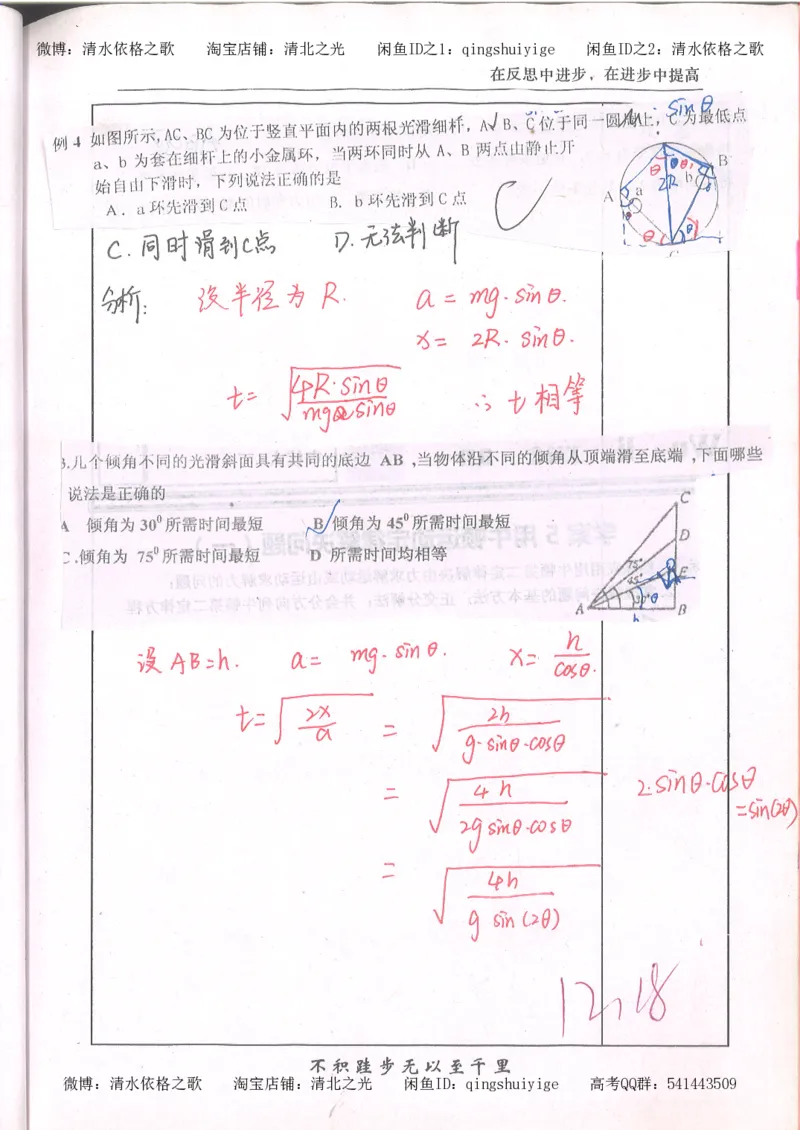 微博：清水依格之歌 淘宝店铺：清北之光 闲鱼ID之1：qingshuiyige 闲鱼ID之2：清水依格之歌
在反思中进步，在进步中提高
例 4 如图所示,AC、BC 为位于竖直平面内的两根光滑细杆，A、B、C 位于同一圆周上，C 为最低点
a、b 为套在细杆上的小金属环，当两环同时从 A、B 两点由静止开
始自由下滑时，下列说法正确的是
A．a 环先滑到 C 点 B．b 环先滑到 C 点
C
sinθ
A B a b 2R θ θ
C.同时滑到C点 D.无法判断
分析: 设半径为 R. a = mg·sinθ.
x = 2R·sinθ.
t = √(4R·sinθ / mg sinθ) ∴ t 相等
3.几个倾角不同的光滑斜面具有共同的底边 AB ,当物体沿不同的倾角从顶端滑至底端 ,下面哪些
说法是正确的
A 倾角为 30⁰所需时间最短 B 倾角为 45⁰所需时间最短
C .倾角为 75⁰所需时间最短 D 所需时间均相等
C D E 75° 45° 30° θ A h B
设 AB=h. a= mg·sinθ. x= h/cosθ.
t= √(2x/a) = √(2h / g·sinθ·cosθ)
= √(4h / 2g sinθ·cosθ) 2·sinθ·cosθ
=sin(2θ)
= √(4h / g sin(2θ))
12.18
不积跬步无以至千里
微博：清水依格之歌 淘宝店铺：清北之光 闲鱼ID：qingshuiyige 高考QQ群：541443509